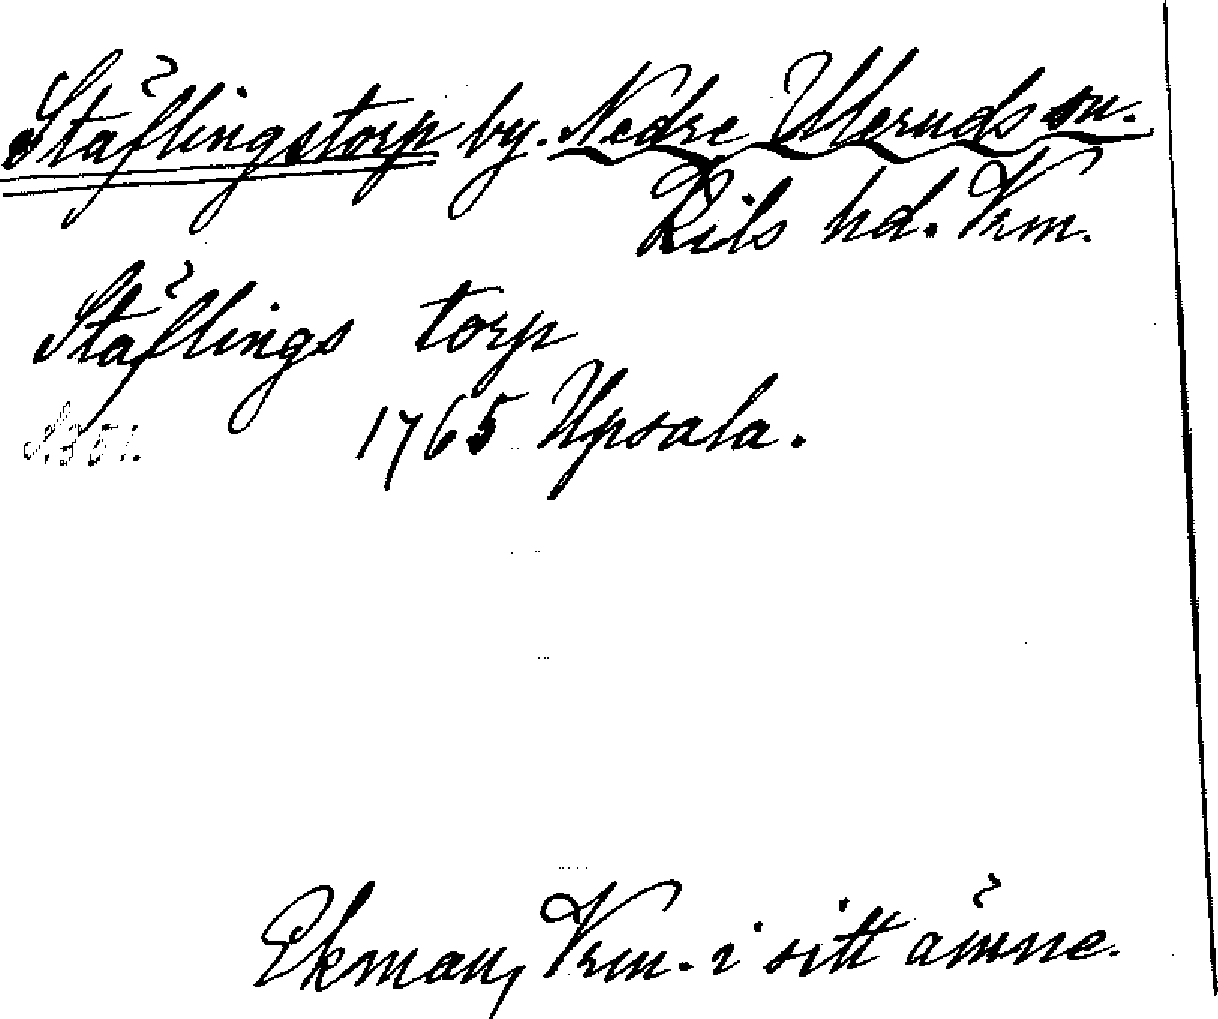 Stäflingstorp by. Nedre Ulleruds sn.
Kils hd. Vrm.
Stäflings torp
1765 Upsala.
Ekman, Vrm. i sitt ämne.